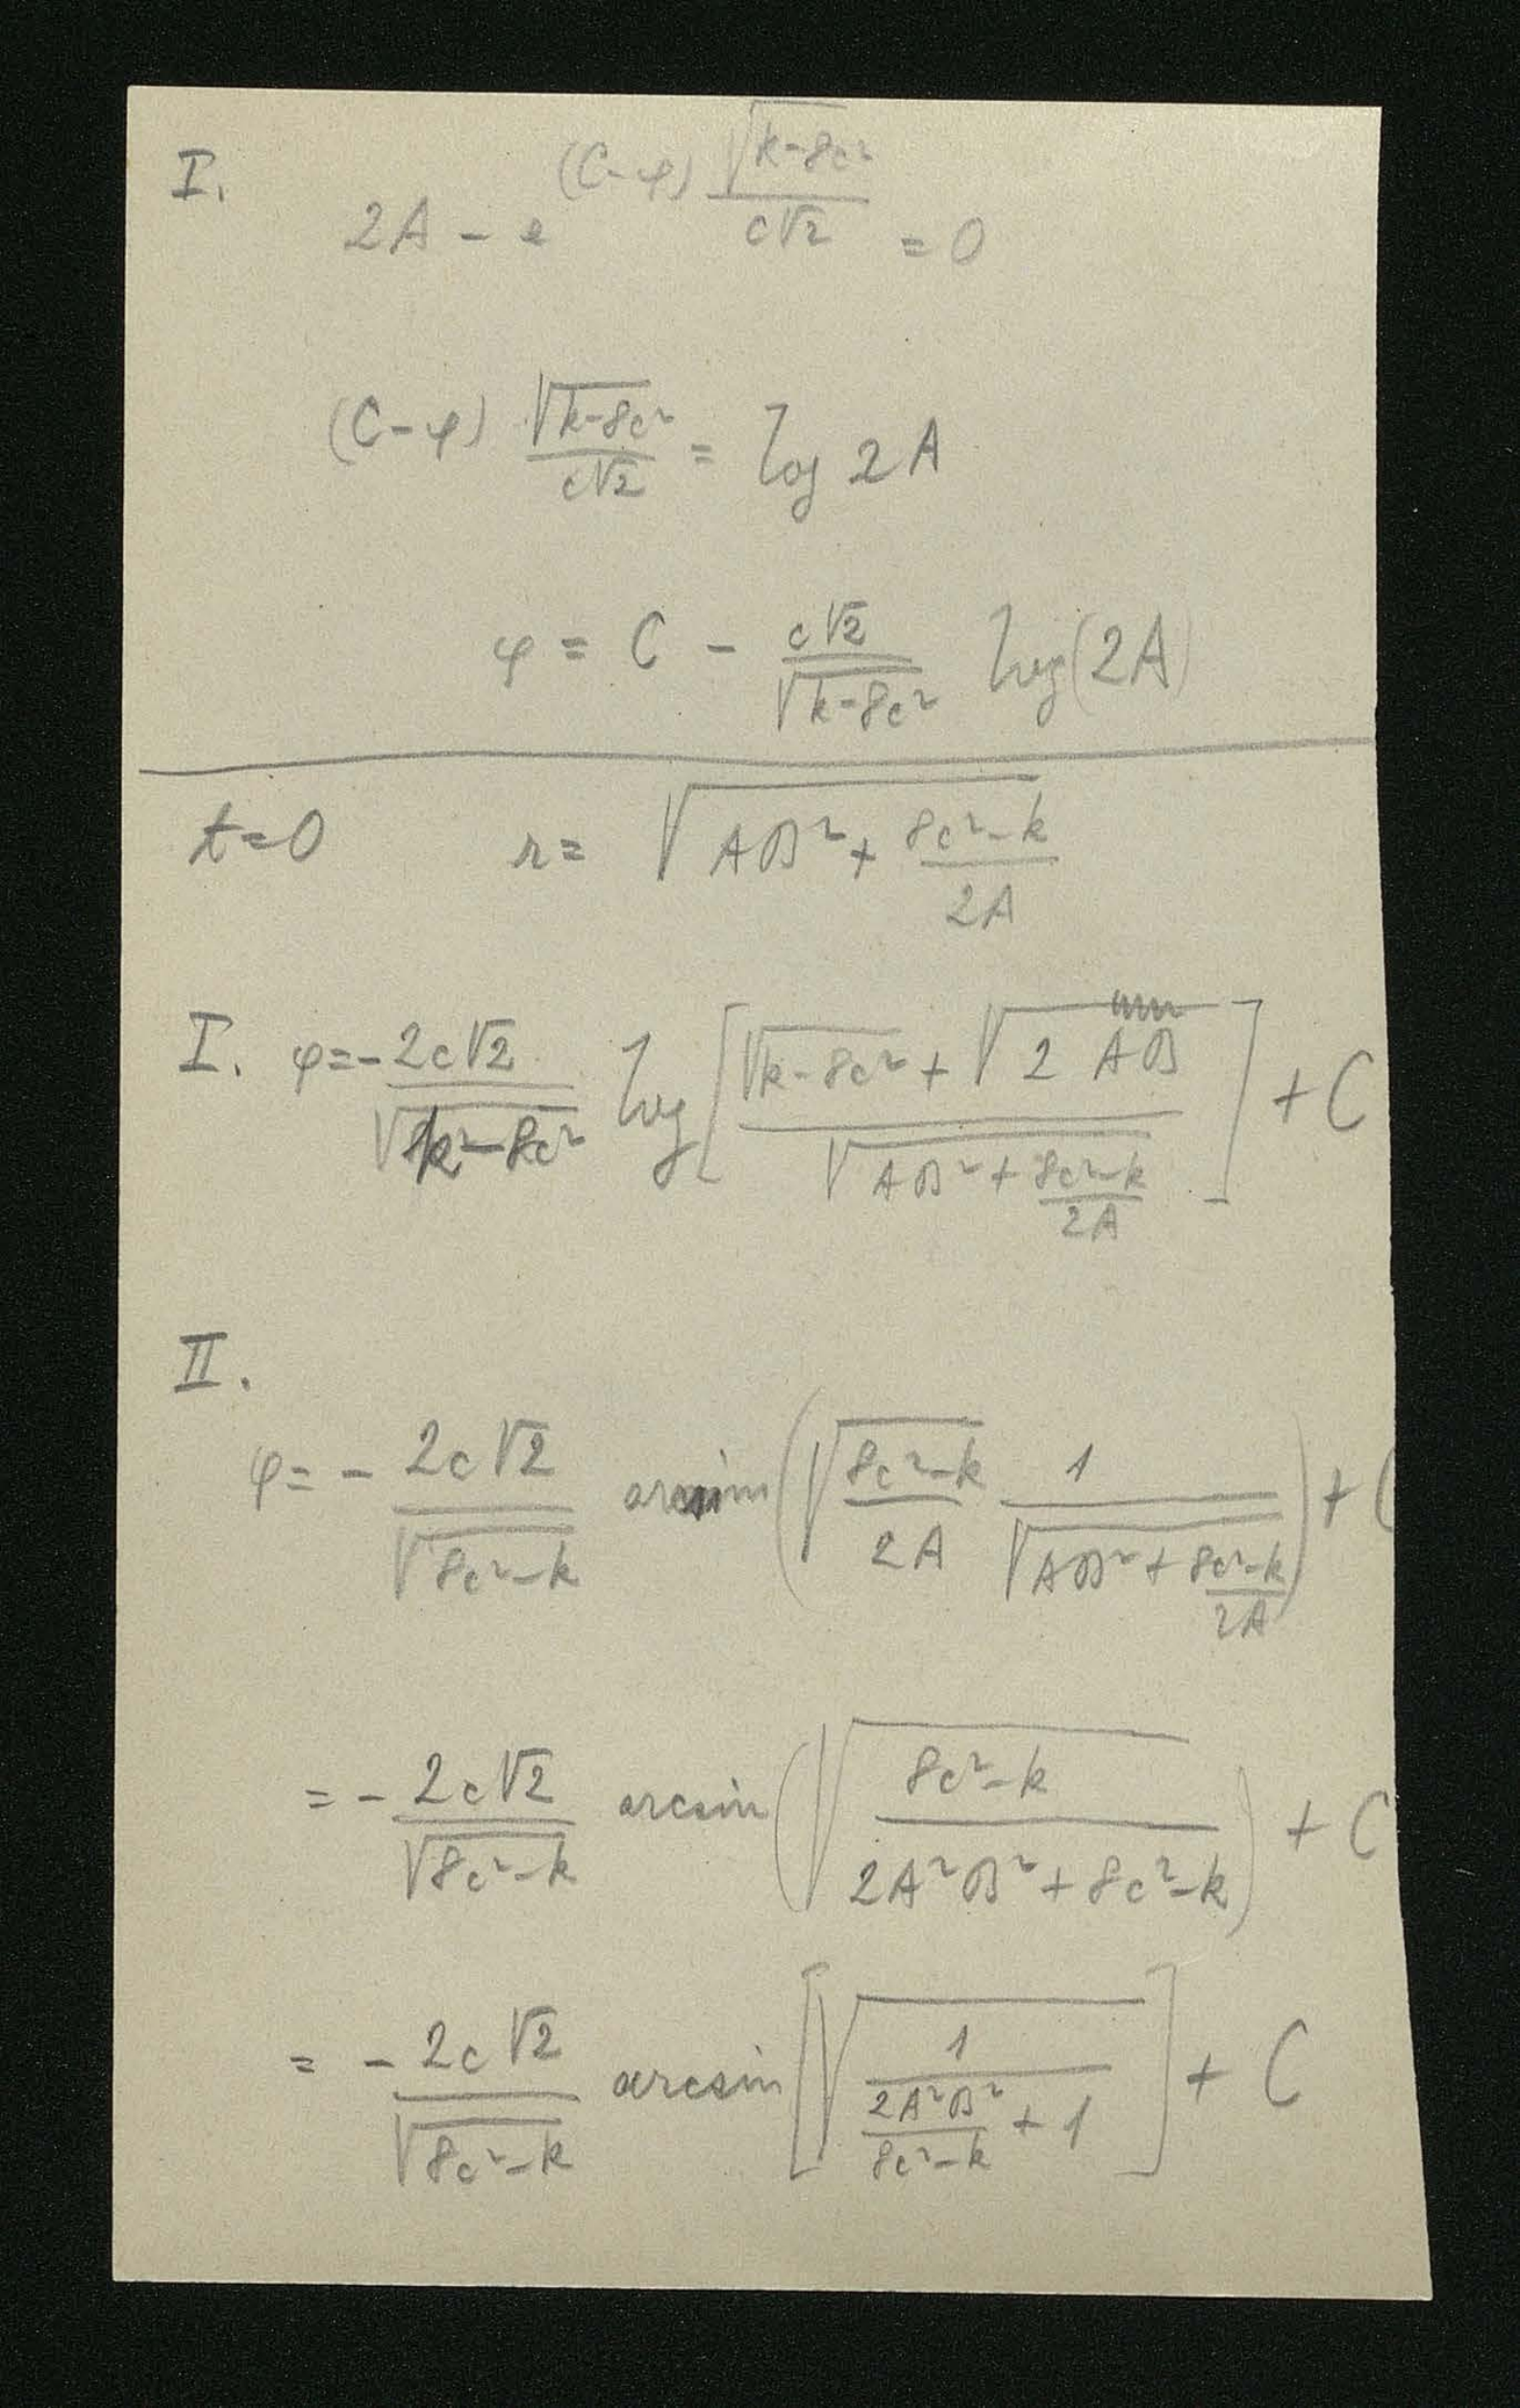 I.
2A - e^{(C-φ) \frac{\sqrt{k-8c²}}{c\sqrt{2}}} = 0
(C-φ) \frac{\sqrt{k-8c²}}{c\sqrt{2}} = log 2A
φ = C - \frac{c\sqrt{2}}{\sqrt{k-8c²}} log(2A)
t=0 r= \sqrt{AB² + \frac{8c²-k}{2A}}
I. φ = - \frac{2c\sqrt{2}}{\sqrt{k²-8c²}} log [ \frac{\sqrt{k-8c²} + \sqrt{2} AB}{\sqrt{AB² + \frac{8c²-k}{2A}}} ] + C
II.
φ = - \frac{2c\sqrt{2}}{\sqrt{8c²-k}} arcsin ( \sqrt{\frac{8c²-k}{2A}} \frac{1}{\sqrt{AB² + \frac{8c²-k}{2A}}} ) + C
= - \frac{2c\sqrt{2}}{\sqrt{8c²-k}} arcsin ( \sqrt{\frac{8c²-k}{2A²B² + 8c²-k}} ) + C
= - \frac{2c\sqrt{2}}{\sqrt{8c²-k}} arcsin [ \sqrt{\frac{1}{\frac{2A²B²}{8c²-k} + 1}} ] + C